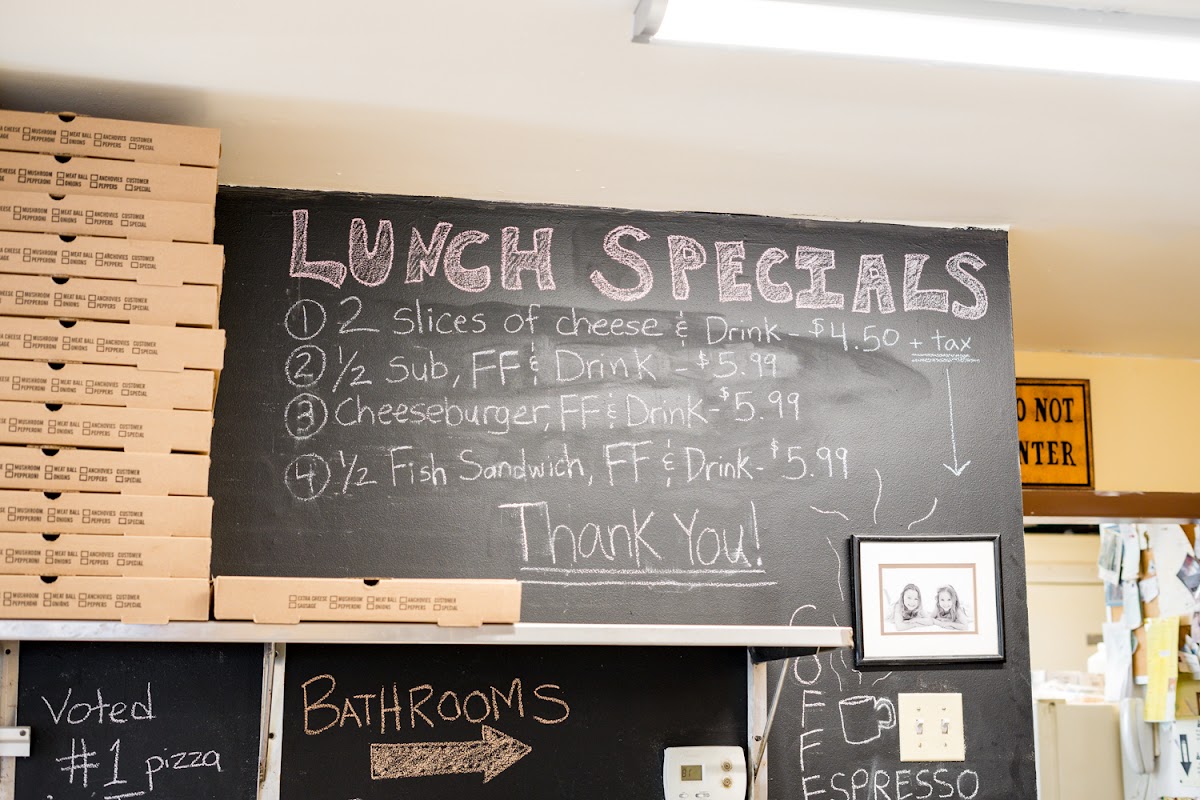 LUNCH SPECIALS
① 2 slices of cheese & Drink - $4.50 + tax
② 1/2 sub, FF & Drink - $5.99
③ Cheeseburger, FF & Drink - $5.99
④ 1/2 Fish Sandwich, FF & Drink - $5.99
Thank You!
O NOT
NTER
EXTRA CHEESE MUSHROOM MEAT BALL ANCHOVIES CUSTOMER
SAUSAGE PEPPERONI ONIONS PEPPERS SPECIAL
Voted
#1 pizza
BATHROOMS
COFFEE
ESPRESSO